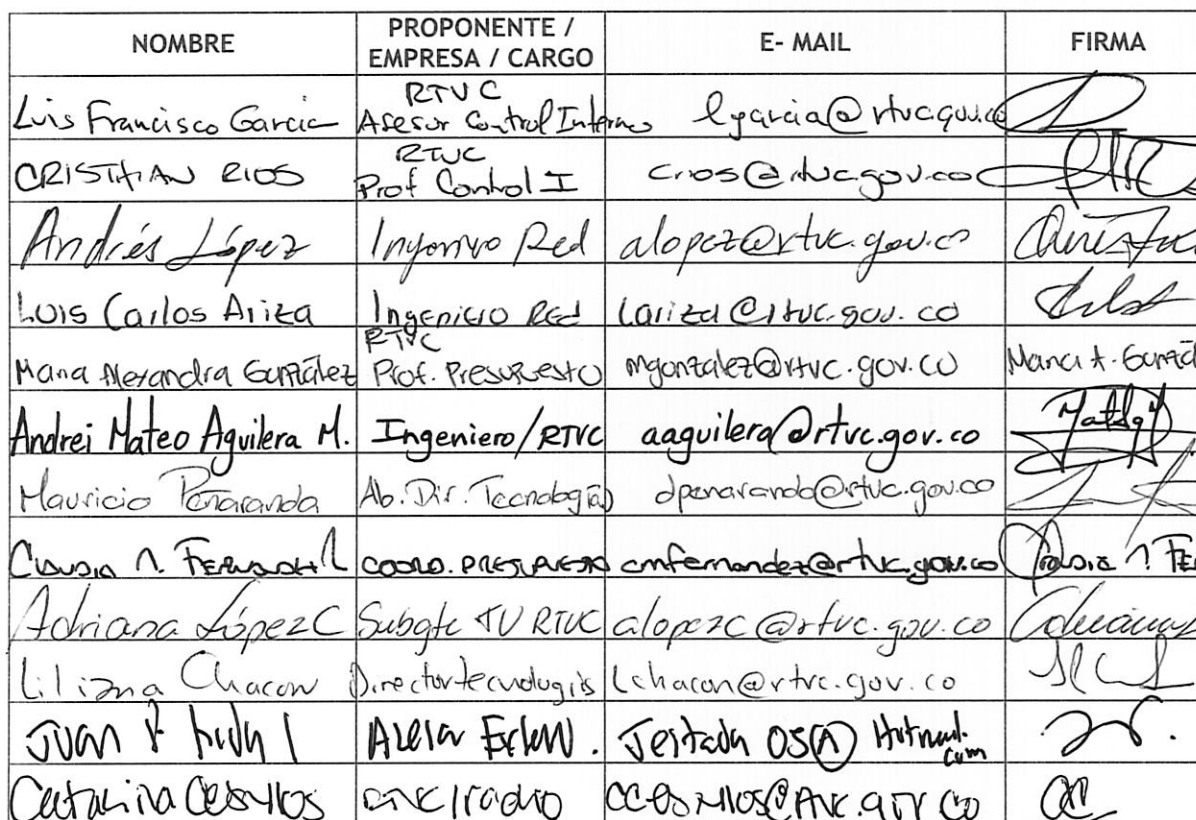 NOMBRE PROPONENTE / EMPRESA / CARGO E- MAIL FIRMA
Luis Francisco Garcia RTVC Asesor Control Interno lgarcia@rtvc.gov.co
CRISTHIAN RIOS RTVC Prof Control I crios@rtvc.gov.co
Andrés López Ingeniero Red alopez@rtvc.gov.co
Luis Carlos Ariza Ingeniero Red lariza@rtvc.gov.co
Maria Alexandra González RTVC Prof. Presupuesto mgonzalez@rtvc.gov.co Maria A. Gonzál
Andrei Mateo Aguilera M. Ingeniero/RTVC aaguilera@rtvc.gov.co
Mauricio Peñaranda Ab. Dir. Tecnologías dpenaranda@rtvc.gov.co
Claudia M. Fernández COORD. PRESUPUESTO cmfernandez@rtvc.gov.co Claudia M. Fe
Adriana López C Subgte TV RTVC alopezc@rtvc.gov.co Adriana
Liliana Chacon Director tecnologias lchacon@rtvc.gov.co
Juan Asesor Extern. 05@Hotmail.com
Catalina Ceballos RTVC/radio cceballos@rtvc.gov.co